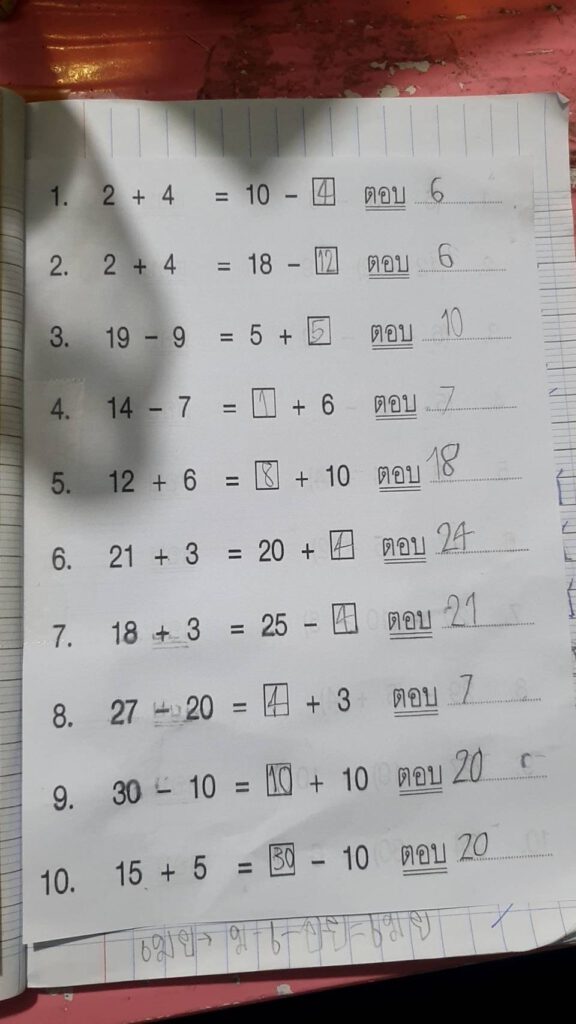 1. 2 + 4 = 10 - 4 ตอบ 6
2. 2 + 4 = 18 - 12 ตอบ 6
3. 19 - 9 = 5 + 5 ตอบ 10
4. 14 - 7 = 1 + 6 ตอบ 7
5. 12 + 6 = 8 + 10 ตอบ 18
6. 21 + 3 = 20 + 4 ตอบ 24
7. 18 + 3 = 25 - 4 ตอบ 21
8. 27 - 20 = 4 + 3 ตอบ 7
9. 30 - 10 = 10 + 10 ตอบ 20
10. 15 + 5 = 30 - 10 ตอบ 20